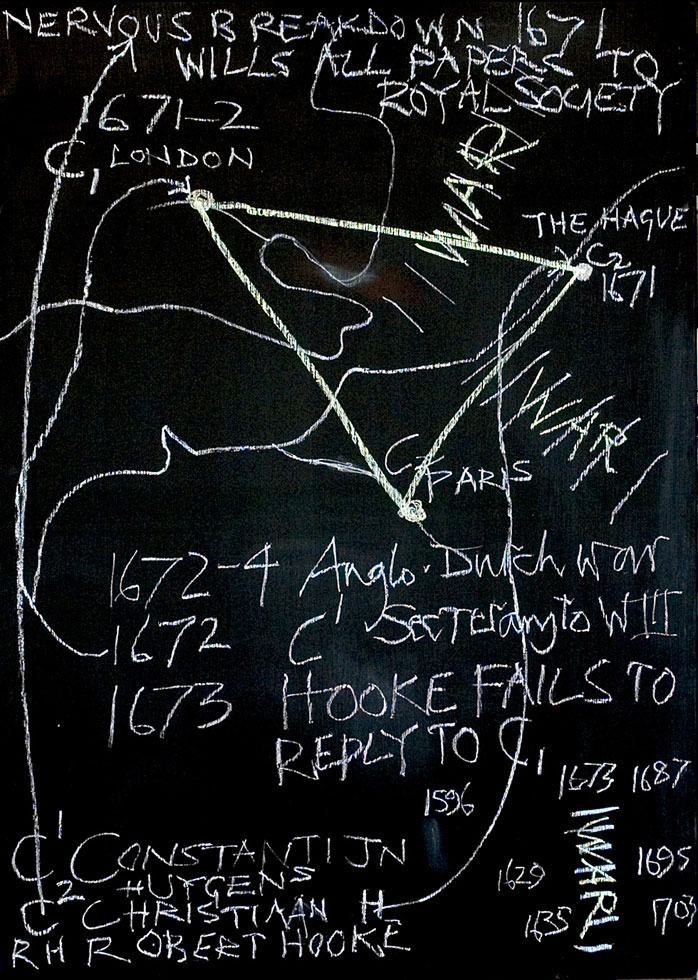 NERVOUS BREAKDOWN 1671
WILLS ALL PAPERS TO
ROYAL SOCIETY
1671-2
C1 LONDON
WAR
THE HAGUE
C2
1671
WAR
C2 PARIS
1672-4 Anglo-Dutch War
1672 C1 Secretary to W III
1673 HOOKE FAILS TO
REPLY TO C1
1673 1687
1596
WAR
C1 CONSTANTIJN
HUYGENS
1629
1695
C2 CHRISTIAAN H
1635
1703
RH ROBERT HOOKE